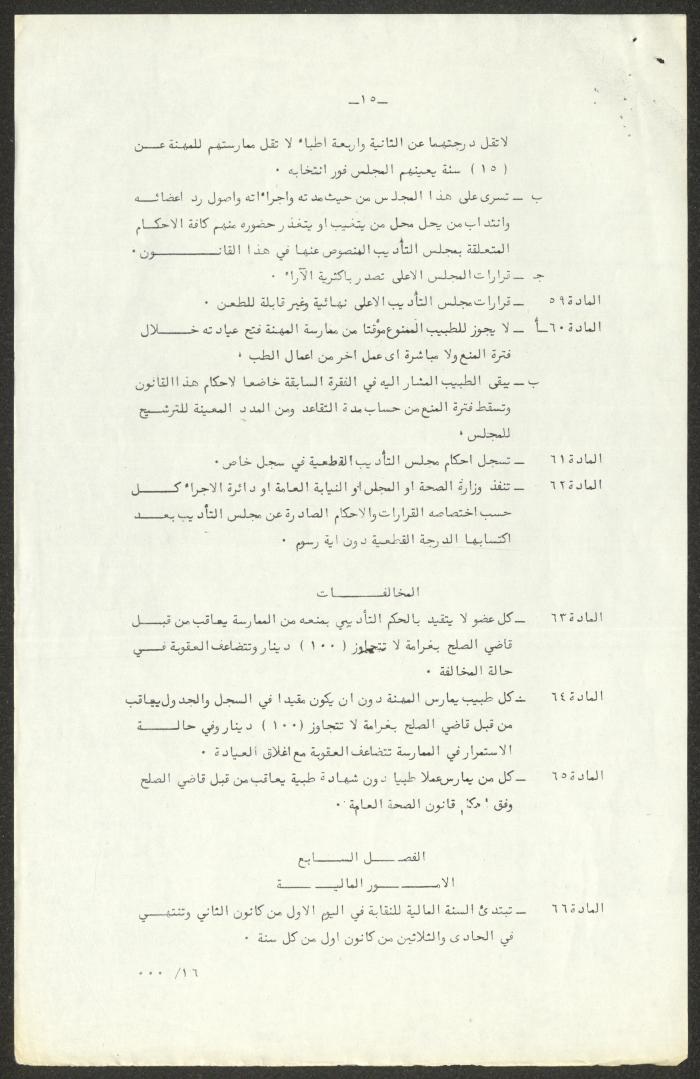 ـ١٥ـ
لا تقل درجتهما عن الثانية واربعة اطباء لا تقل ممارستهم للمهنة عن
( ١٥ ) سنة يعينهم المجلس فور انتخابه ٠
ب ـ تسرى على هذا المجلس من حيث مدته واجراءاته واصول رد اعضائه
وانتداب من يحل محل من يتغيب او يتعذر حضوره منهم كافة الاحكام
المتعلقة بمجلس التأديب المنصوص عنها في هذا القانون ٠
جـ ـ قرارات المجلس الاعلى تصدر باكثرية الآراء ٠
المادة ٥٩ ـ قرارات مجلس التأديب الاعلى نهائية وغير قابلة للطعن ٠
المادة ٦٠ـأ ـ لا يجوز للطبيب الممنوع مؤقتا من ممارسة المهنة فتح عيادته خلال
فترة المنع ولا مباشرة اى عمل اخر من اعمال الطب ٠
ب ـ يبقى الطبيب المشار اليه في الفقرة السابقة خاضعا لاحكام هذا القانون
وتسقط فترة المنع من حساب مدة التقاعد ومن المدد المعينة للترشيح
للمجلس ٠
المادة ٦١ ـ تسجل احكام مجلس التأديب القطعية في سجل خاص ٠
المادة ٦٢ ـ تنفذ وزارة الصحة او المجلس او النيابة العامة او دائرة الاجراء كل
حسب اختصاصه القرارات والاحكام الصادرة عن مجلس التأديب بعد
اكتسابها الدرجة القطعية دون اية رسوم ٠
المخالفات
المادة ٦٣ ـ كل عضو لا يتقيد بالحكم التأديبي بمنعه من الممارسة يعاقب من قبل
قاضي الصلح بغرامة لا تتجاوز ( ١٠٠ ) دينار وتتضاعف العقوبة في
حالة المخالفة ٠
المادة ٦٤ ـ كل طبيب يمارس المهنة دون ان يكون مقيدا في السجل والجدول يعاقب
من قبل قاضي الصلح بغرامة لا تتجاوز ( ١٠٠ ) دينار وفي حالة
الاستمرار في الممارسة تتضاعف العقوبة مع اغلاق العيادة ٠
المادة ٦٥ ـ كل من يمارس عملا طبيا دون شهادة طبية يعاقب من قبل قاضي الصلح
وفق احكام قانون الصحة العامة ٠
الفصل السابع
الامور المالية
المادة ٦٦ ـ تبتدئ السنة المالية للنقابة في اليوم الاول من كانون الثاني وتنتهي
في الحادى والثلاثين من كانون اول من كل سنة ٠
١٦/ ٠٠٠